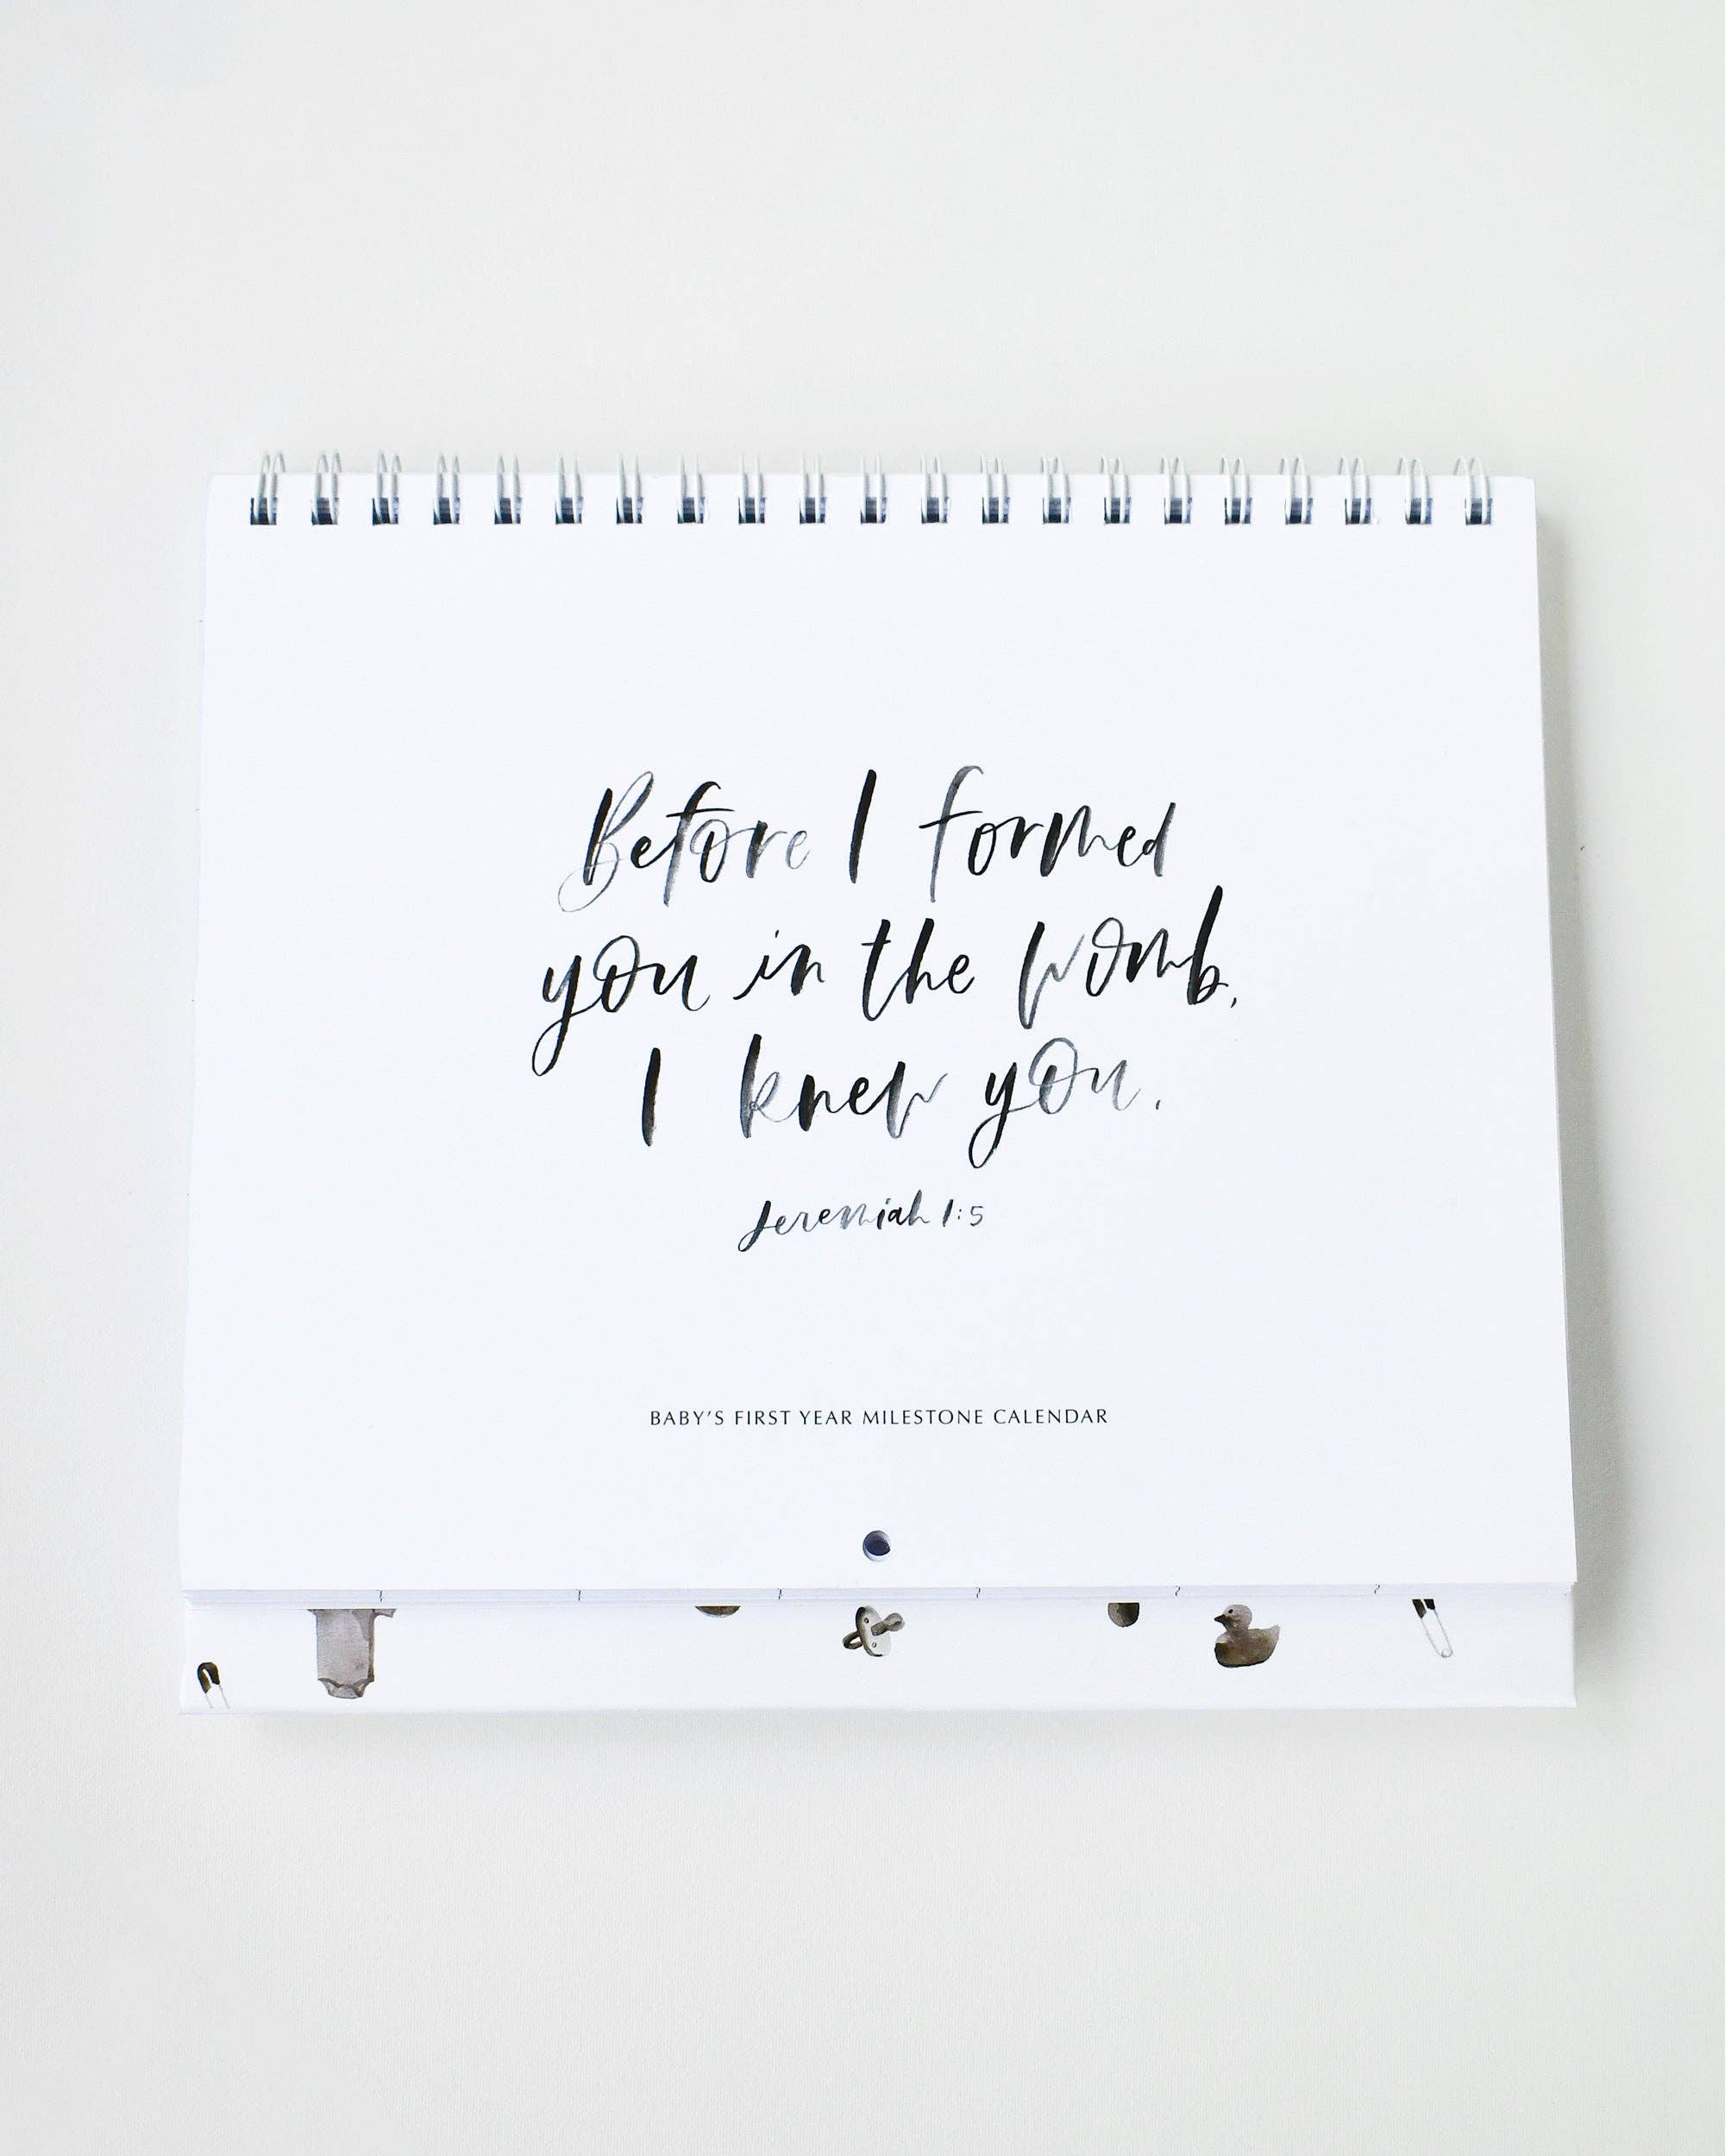 Before I formed
you in the womb,
I knew you.
Jeremiah 1:5
BABY'S FIRST YEAR MILESTONE CALENDAR